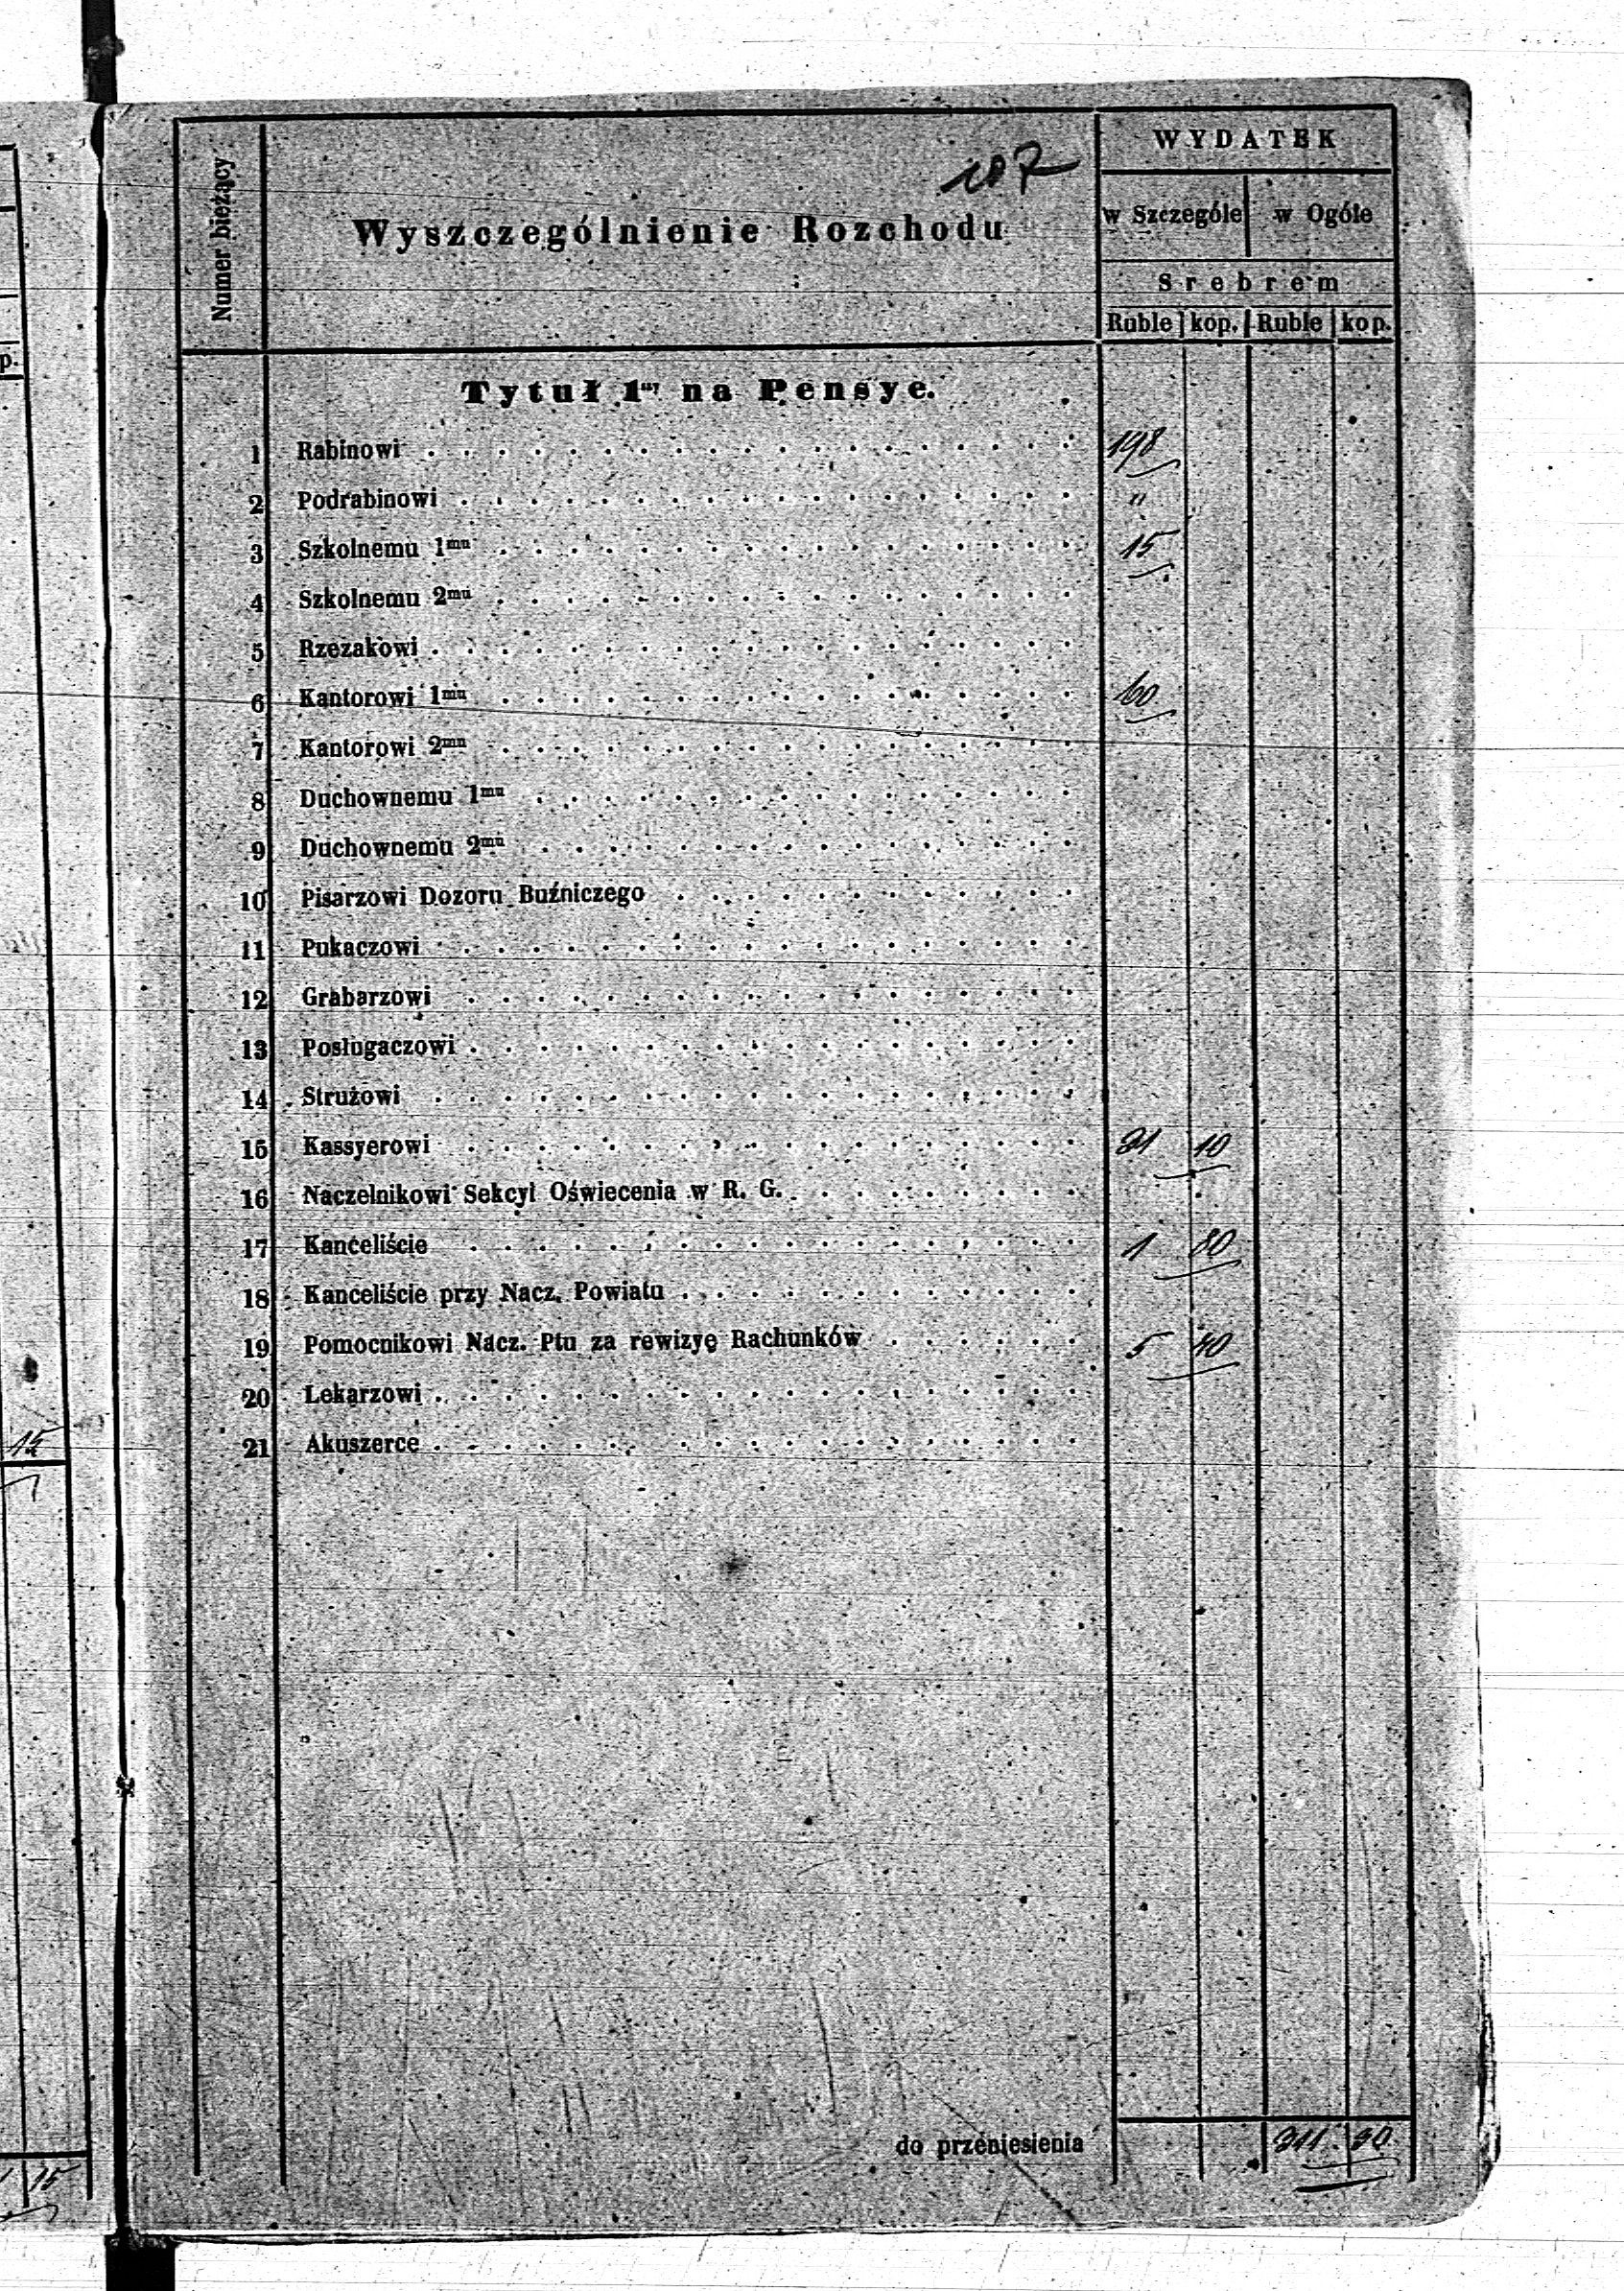 187
Numer bieżący
Wyszczególnienie Rozchodu
WYDATEK
w Szczególe w Ogóle
Srebrem
Ruble kop. Ruble kop.
p.
Tytuł 1szy na Pensye.
1 Rabinowi 198
2 Podrabinowi "
3 Szkolnemu 1mu 15
4 Szkolnemu 2mu
5 Rzezakowi
6 Kantorowi 1mu 60
7 Kantorowi 2mu
8 Duchownemu 1mu
9 Duchownemu 2mu
10 Pisarzowi Dozoru Buźniczego
11 Pukaczowi
12 Grabarzowi
13 Posługaczowi
14 Strużowi
15 Kassyerowi 31 10
16 Naczelnikowi Sekcyi Oświecenia w R. G.
17 Kanceliście 1 80
18 Kanceliście przy Nacz. Powiatu
19 Pomocnikowi Nacz. Ptu za rewizyę Rachunków 5 40
20 Lekarzowi
21 Akuszerce
15
do przeniesienia 311 30
15